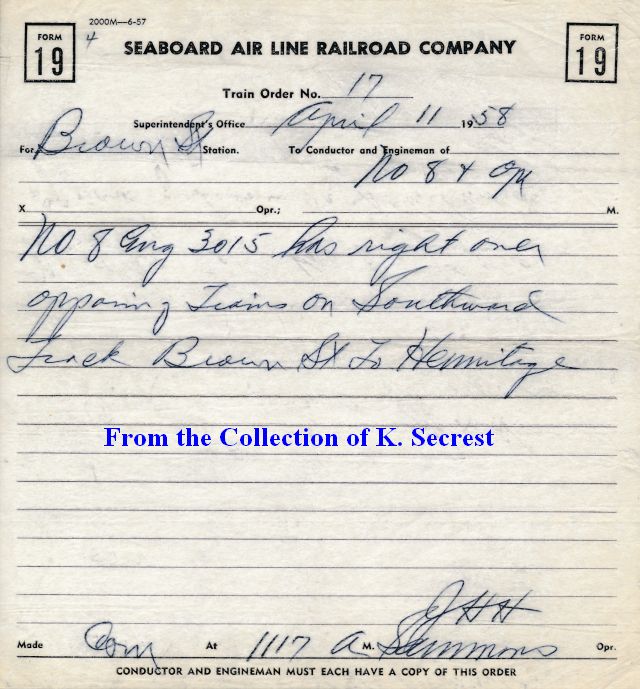 2000M—6-57
4
FORM
19
SEABOARD AIR LINE RAILROAD COMPANY
FORM
19
Train Order No. 17
Superintendent's Office April 11 1958
For Brown St Station. To Conductor and Engineman of
No 8 & Opr
X Opr.; M.
No 8 Eng 3015 has right over
opposing Trains on Southward
Track Brown St To Hermitage
From the Collection of K. Secrest
JHH
Made Com At 1117 A M. Sammons Opr.
CONDUCTOR AND ENGINEMAN MUST EACH HAVE A COPY OF THIS ORDER